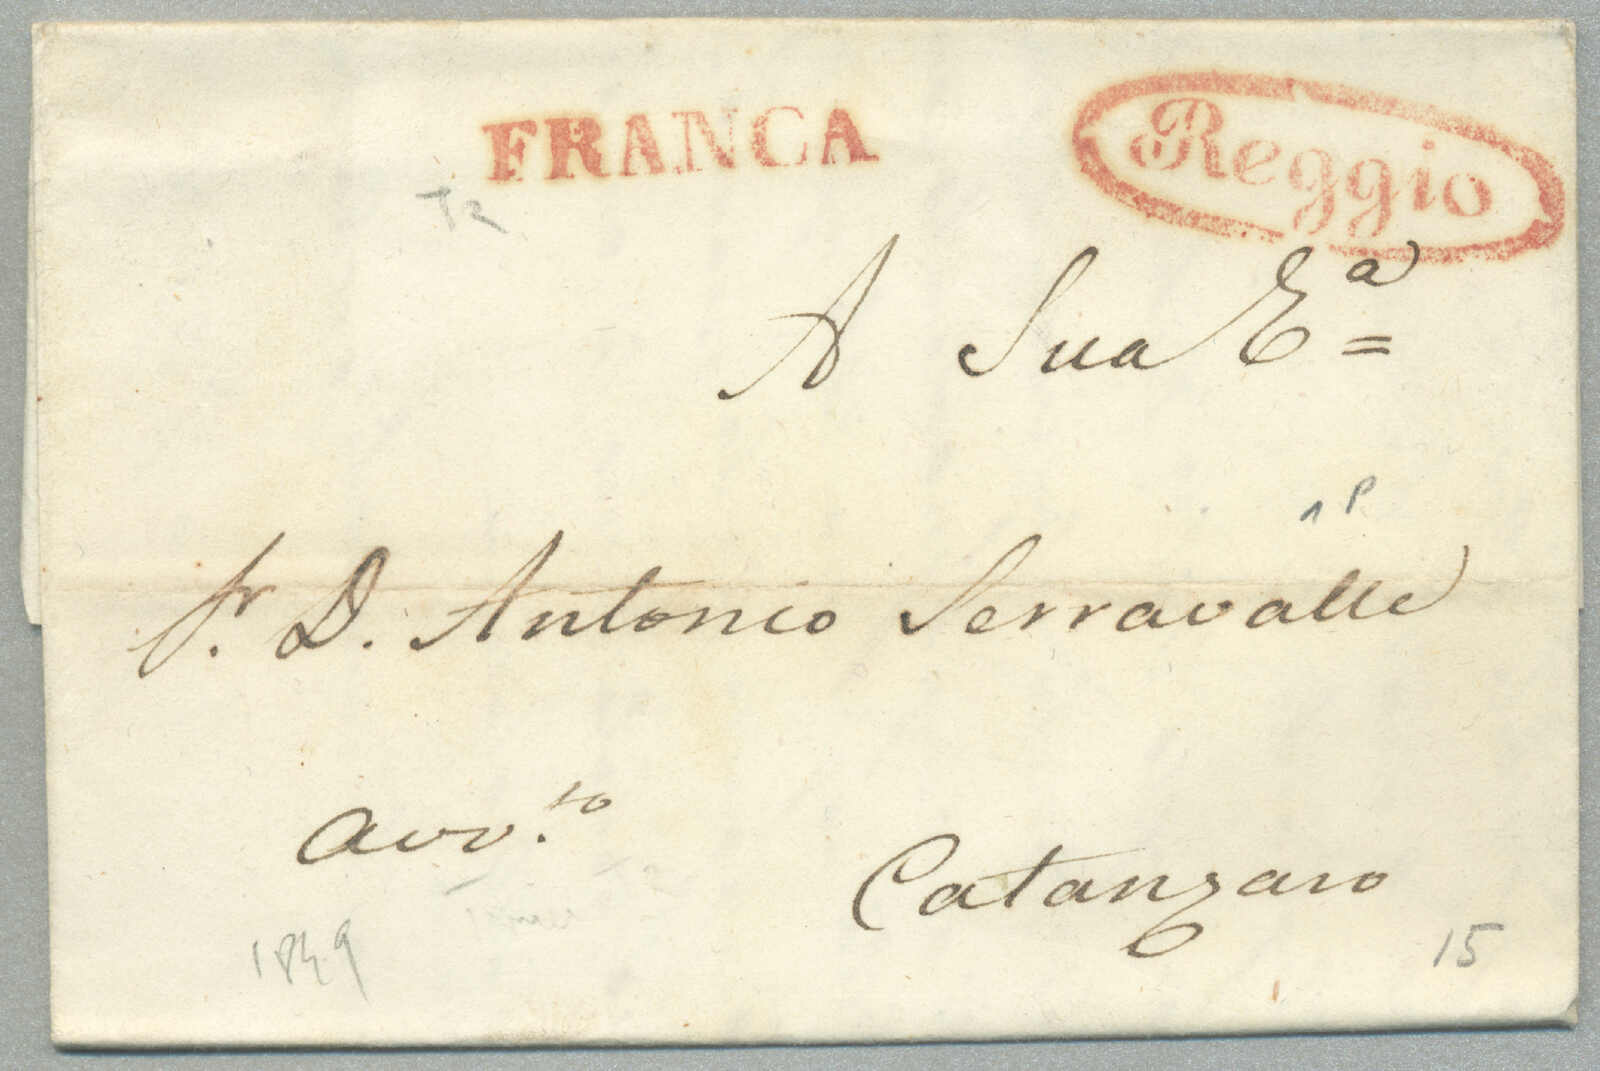 FRANCA
Reggio
A Sua Eª =
1 P
Sr. D. Antonio Serravalle
avv.to
Catanzaro
1849
15